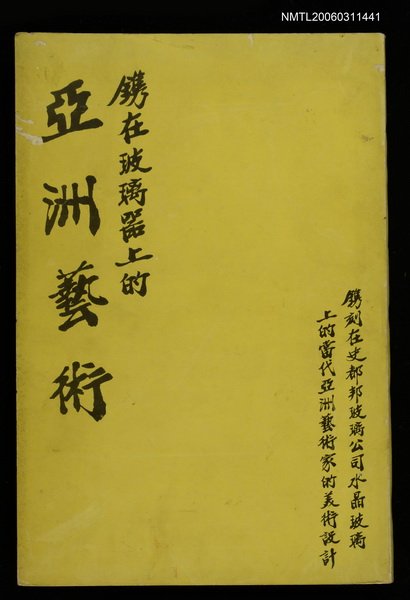 NMTL20060311441
鐫在玻璃器上的
亞洲藝術
鐫刻在史都邦玻璃公司水晶玻璃
上的當代亞洲藝術家的美術設計